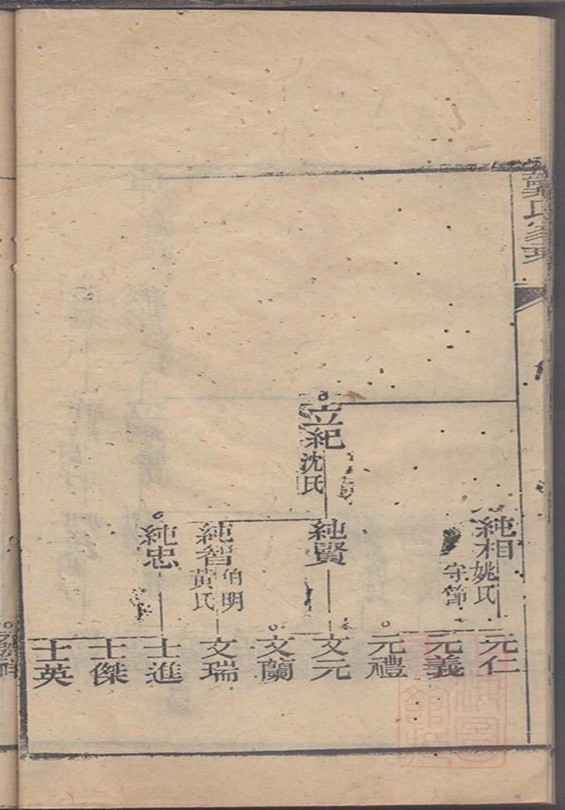 立紀
沈氏
純相
姚氏
守節
純賢
純智
伯明
黃氏
純忠
元仁
元義
元禮
文元
文蘭
文瑞
士進
士傑
士英